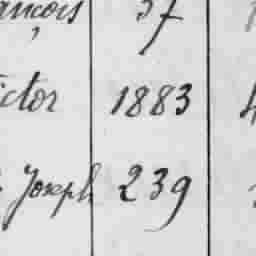 ançois 57
ictor 1883
Joseph 239